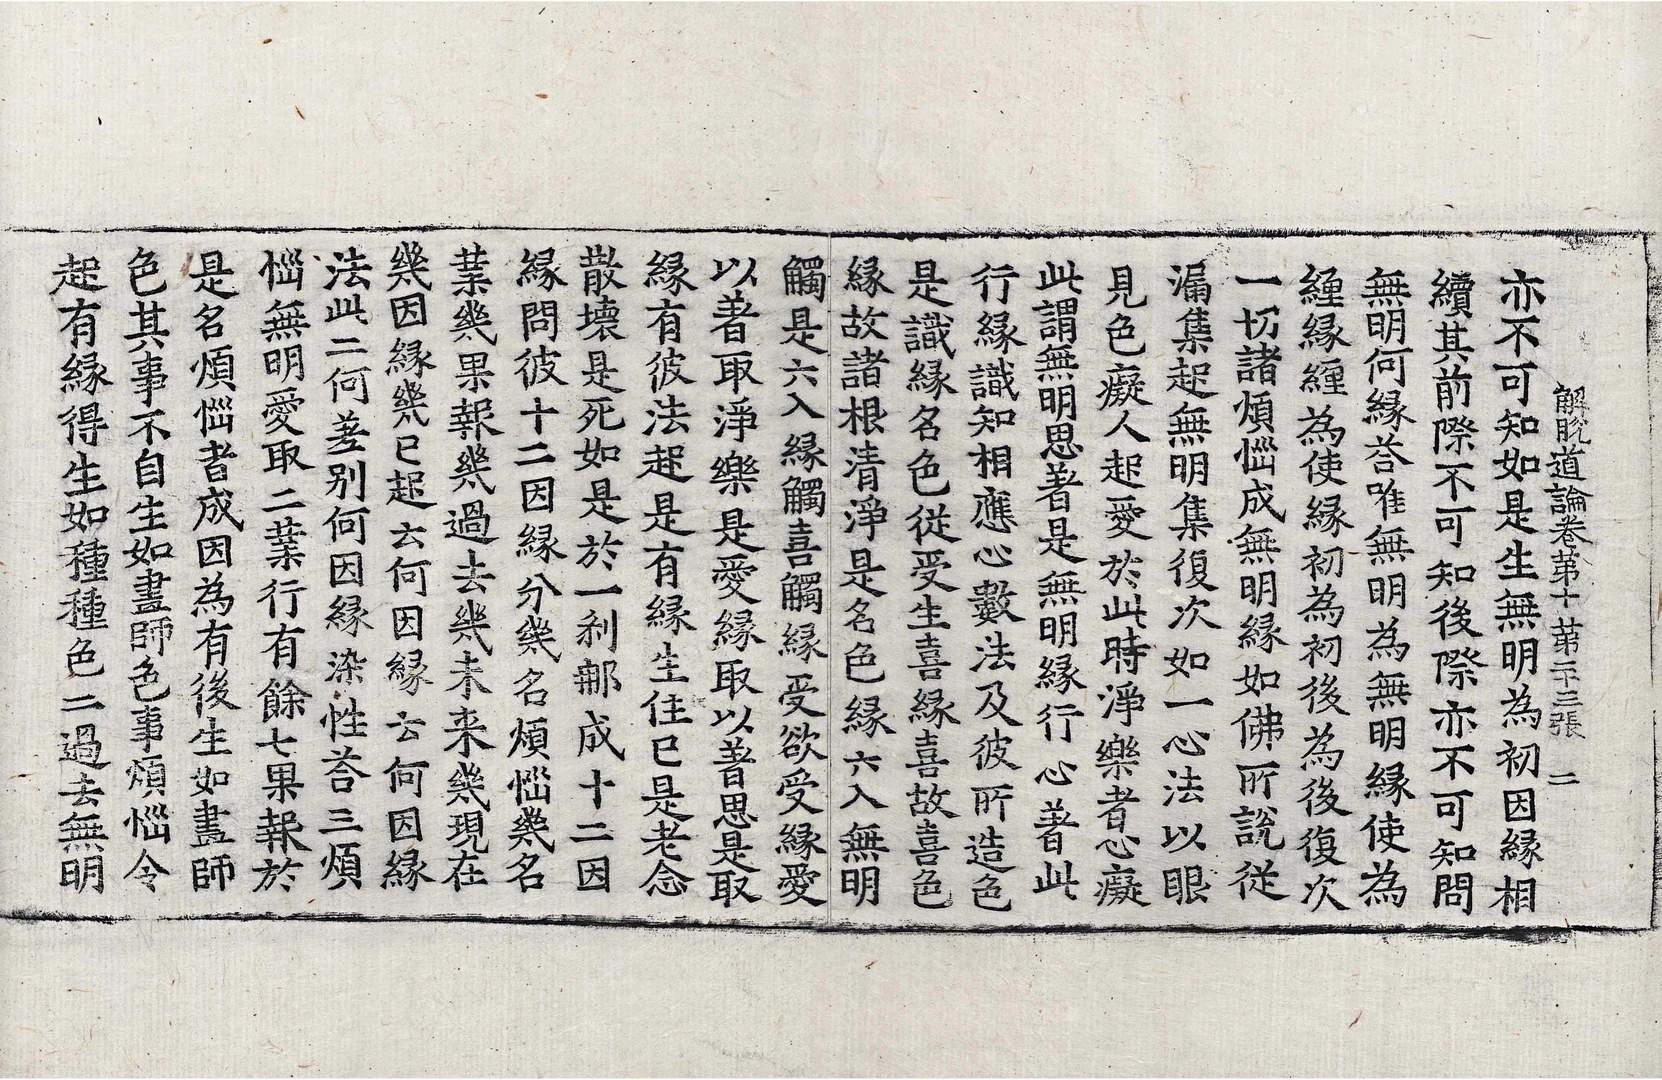 解脱道論卷第十 第二十三張 二
亦不可知如是生無明為初因縁相
續其前際不可知後際亦不可知問
無明何縁荅唯無明為無明縁使為
纏縁纏為使縁初為初後為後復次
一切諸煩惱成無明縁如佛所說從
漏集起無明集復次如一心法以眼
見色癡人起愛於此時淨樂者心癡
此謂無明思著是無明縁行心著此
行縁識知相應心數法及彼所造色
是識縁名色從受生喜縁喜故喜色
縁故諸根清淨是名色縁六入無明
觸是六入縁觸喜觸縁受欲受縁愛
以著取淨樂是愛縁取以著思是取
縁有彼法起是有縁生住已是老念
散壞是死如是於一刹那成十二因
縁問彼十二因縁分幾名煩惱幾名
業幾果報幾過去幾未来幾現在
幾因縁幾已起云何因縁云何因縁
法此二何差别何因縁染性荅三煩
惱無明愛取二業行有餘七果報於
是名煩惱者成因為有後生如畫師
色其事不自生如畫師色事煩惱令
起有縁得生如種種色二過去無明